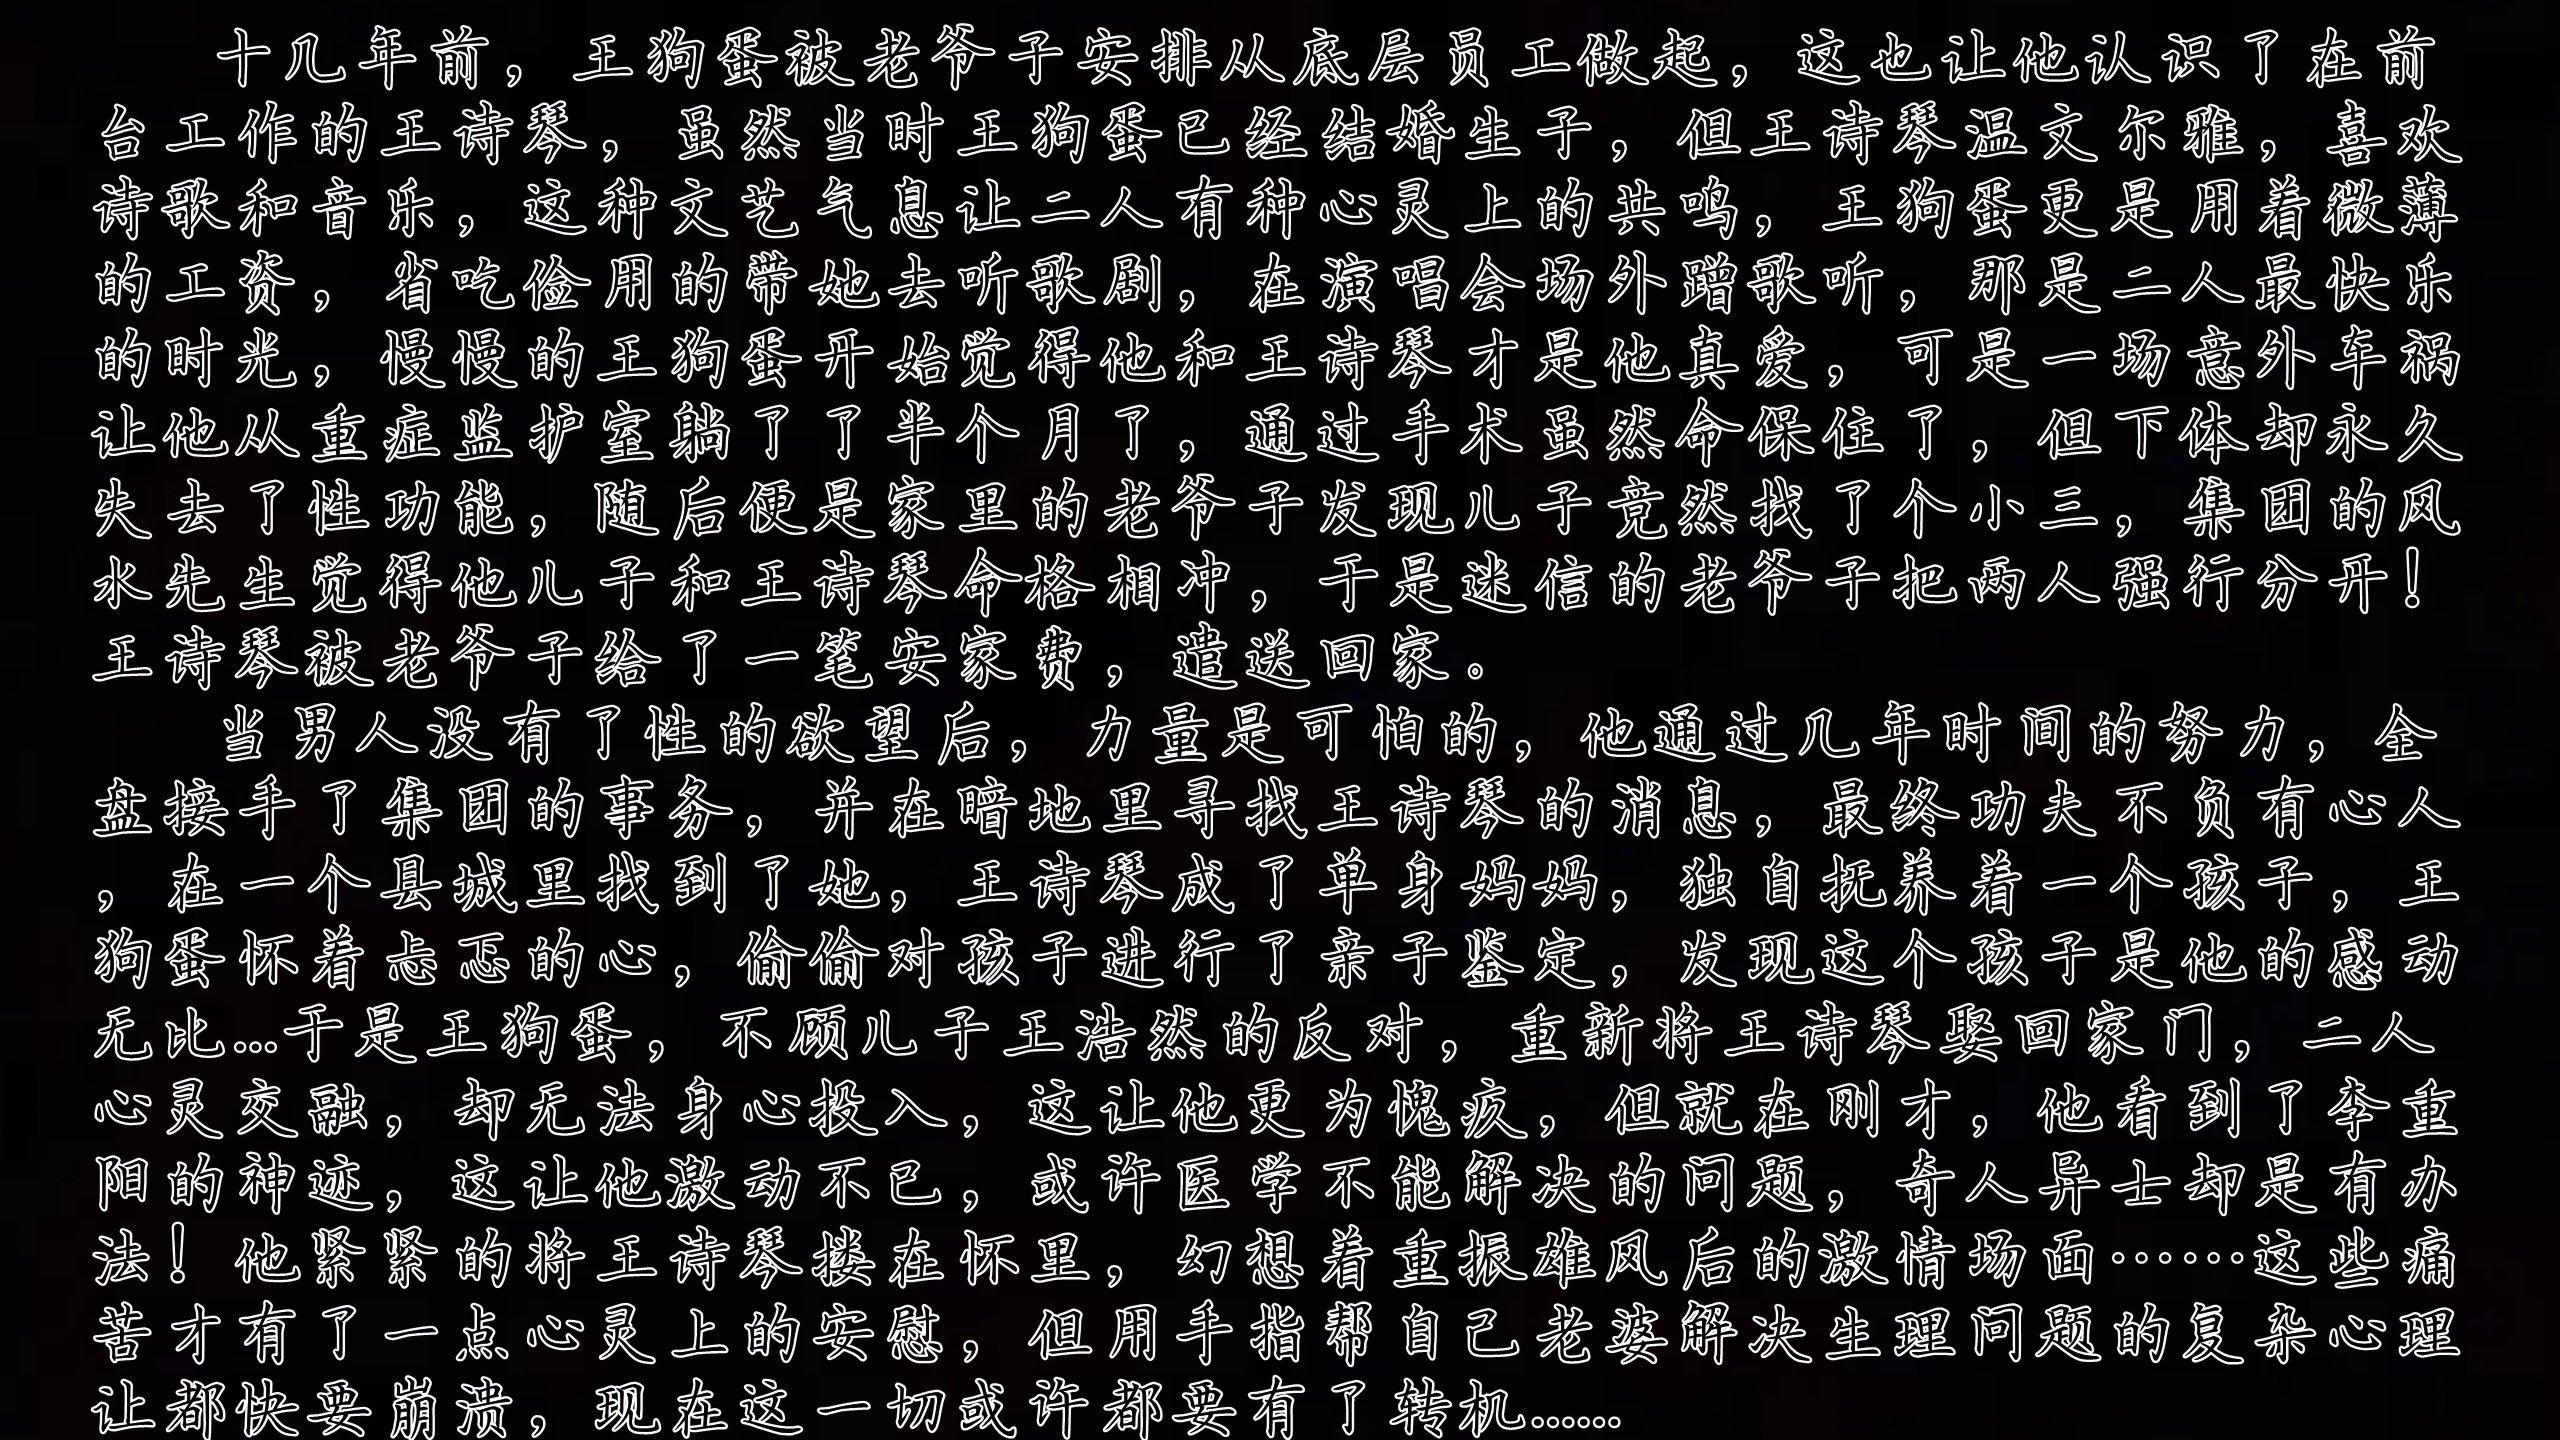 十几年前，王狗蛋被老爷子安排从底层员工做起，这也让他认识了在前
台工作的王诗琴，虽然当时王狗蛋已经结婚生子，但王诗琴温文尔雅，喜欢
诗歌和音乐，这种文艺气息让二人有种心灵上的共鸣，王狗蛋更是用着微薄
的工资，省吃俭用的带她去听歌剧，在演唱会场外蹭歌听，那是二人最快乐
的时光，慢慢的王狗蛋开始觉得他和王诗琴才是他真爱，可是一场意外车祸
让他从重症监护室躺了了半个月了，通过手术虽然命保住了，但下体却永久
失去了性功能，随后便是家里的老爷子发现儿子竟然找了个小三，集团的风
水先生觉得他儿子和王诗琴命格相冲，于是迷信的老爷子把两人强行分开！
王诗琴被老爷子给了一笔安家费，遣送回家。
当男人没有了性的欲望后，力量是可怕的，他通过几年时间的努力，全
盘接手了集团的事务，并在暗地里寻找王诗琴的消息，最终功夫不负有心人
，在一个县城里找到了她，王诗琴成了单身妈妈，独自抚养着一个孩子，王
狗蛋怀着忐忑的心，偷偷对孩子进行了亲子鉴定，发现这个孩子是他的感动
无比...于是王狗蛋，不顾儿子王浩然的反对，重新将王诗琴娶回家门，二人
心灵交融，却无法身心投入，这让他更为愧疚，但就在刚才，他看到了李重
阳的神迹，这让他激动不已，或许医学不能解决的问题，奇人异士却是有办
法！他紧紧的将王诗琴搂在怀里，幻想着重振雄风后的激情场面……这些痛
苦才有了一点心灵上的安慰，但用手指帮自己老婆解决生理问题的复杂心理
让都快要崩溃，现在这一切或许都要有了转机......